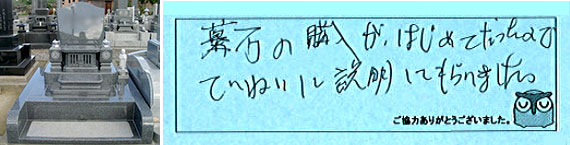 墓石の購入が、はじめてだったので
ていねいに説明してもらいました。
ご協力ありがとうございました。